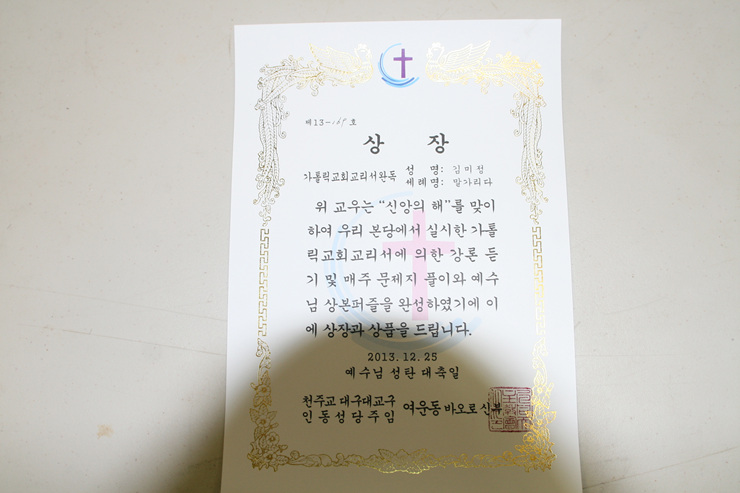 제13-169호
상 장
가톨릭교회교리서완독 성 명: 김미정
세례명: 말가리다
위 교우는 “신앙의 해”를 맞이
하여 우리 본당에서 실시한 가톨
릭교회교리서에 의한 강론 듣
기 및 매주 문제지 풀이와 예수
님 상본퍼즐을 완성하였기에 이
에 상장과 상품을 드립니다.
2013. 12. 25
예수님 성탄 대축일
천주교 대구대교구
인동성당주임 여운동 바오로 신부